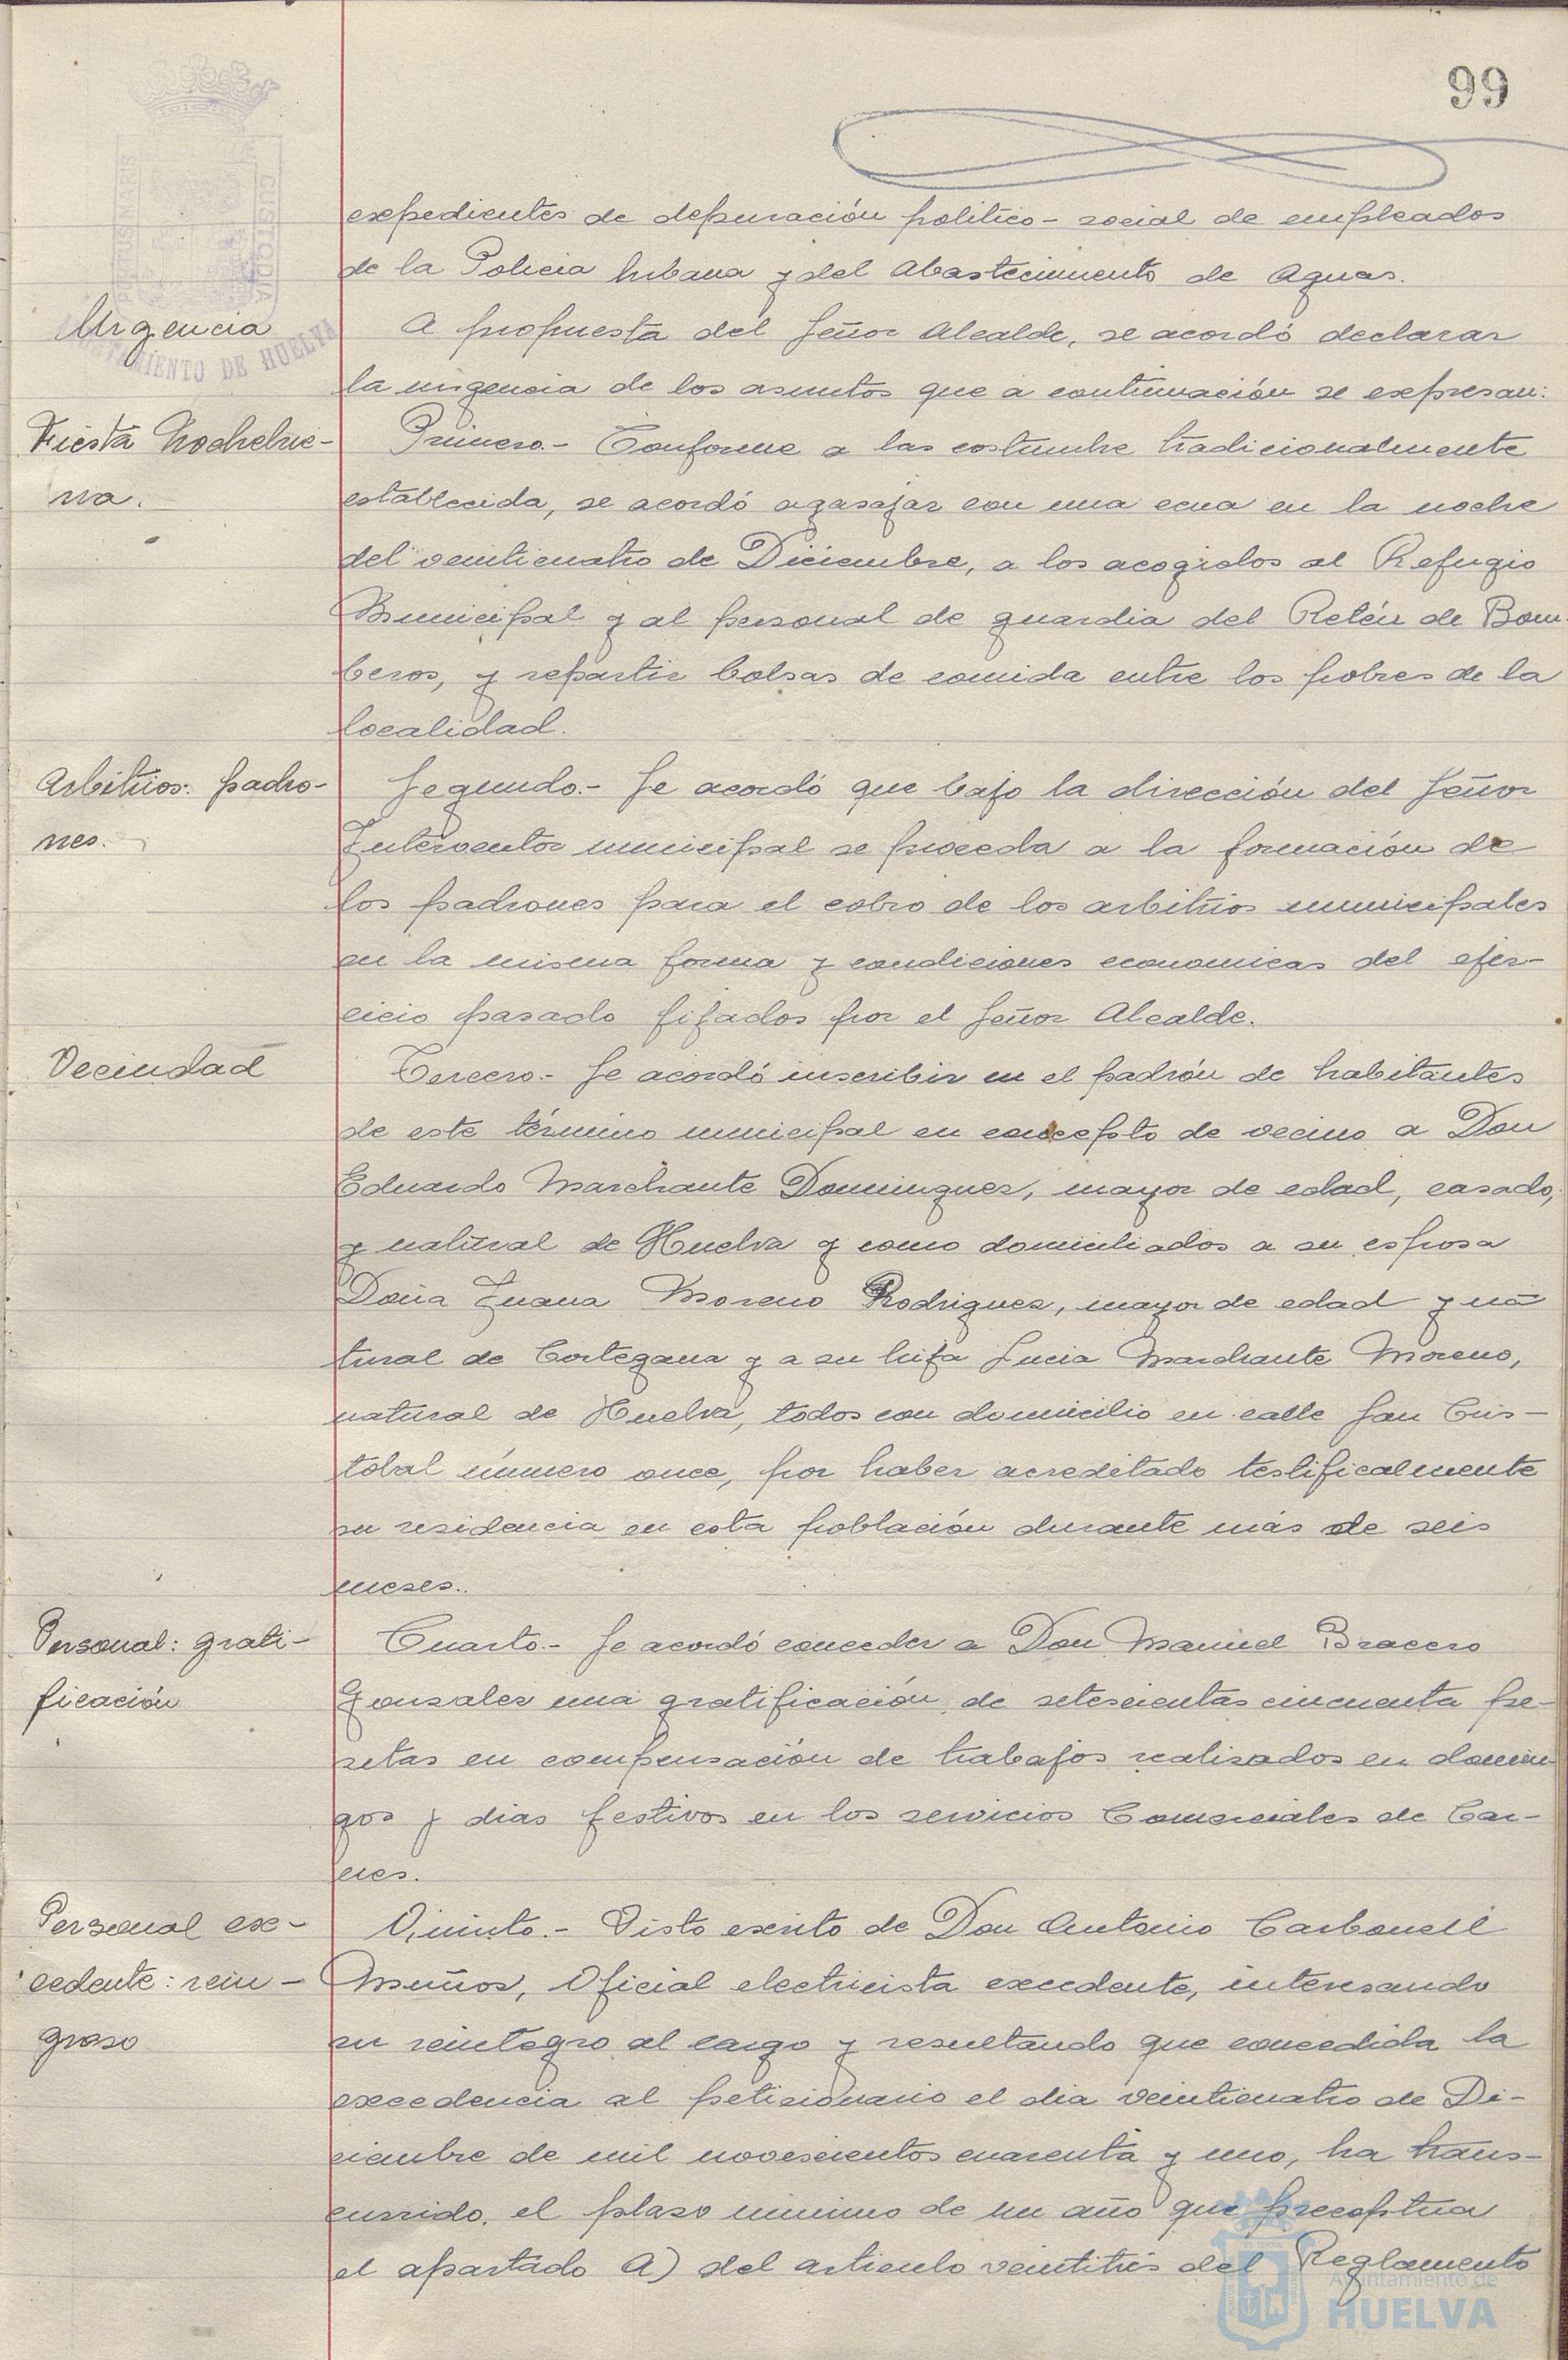 99
expedientes de depuración politico-social de empleados
de la Policia Urbana y del Abastecimiento de Aguas.
Urgencia
A propuesta del Señor Alcalde, se acordó declarar
la urgencia de los asuntos que a continuación se expresan:
Fiesta Nochebue-
na.
Primero.- Conforme a las costumbre tradicionalmente
establecida, se acordó agasajar con una cena en la noche
del veinticuatro de Diciembre, a los acogidos al Refugio
Municipal y al personal de guardia del Retén de Bom-
beros, y repartir bolsas de comida entre los pobres de la
localidad.
Arbitrios: padro-
nes.
Segundo.- Se acordó que bajo la dirección del Señor
Interventor municipal se proceda a la formación de
los padrones para el cobro de los arbitrios municipales
en la misma forma y condiciones economicas del ejer-
cicio pasado fijados por el Señor Alcalde.
Vecindad
Tercero.- Se acordó inscribir en el padrón de habitantes
de este término municipal en concepto de vecino a Don
Eduardo Marchante Dominguez, mayor de edad, casado,
y natural de Huelva y como domiciliados a su esposa
Doña Juana Moreno Rodriguez, mayor de edad y na
tural de Cortegana y a su hija Lucia Marchante Moreno,
natural de Huelva, todos con domicilio en calle San Cris-
tobal número once, por haber acreditado testificalmente
su residencia en esta población durante más de seis
meses..
Personal: grati-
ficación
Cuarto.- Se acordó conceder a Don Manuel Bracero
Gonzalez una gratificación de setescientas cincuenta pe-
setas en compensación de trabajos realizados en domin-
gos y dias festivos en los servicios Comerciales de Car-
nes.
Personal ex-
cedente: rein-
greso
Quinto.- Visto escrito de Don Antonio Carbonell
Muñoz, Oficial electricista excedente, interesando
su reintegro al cargo y resultando que concedida la
excedencia al peticionario el dia veinticuatro de Di-
ciembre de mil novescientos cuarenta y uno, ha trans-
currido, el plazo minimo de un año que preceptua
el apartado A) del articulo veintitrés del Reglamento
AYUNTAMIENTO DE HUELVA
Ayuntamiento de
HUELVA